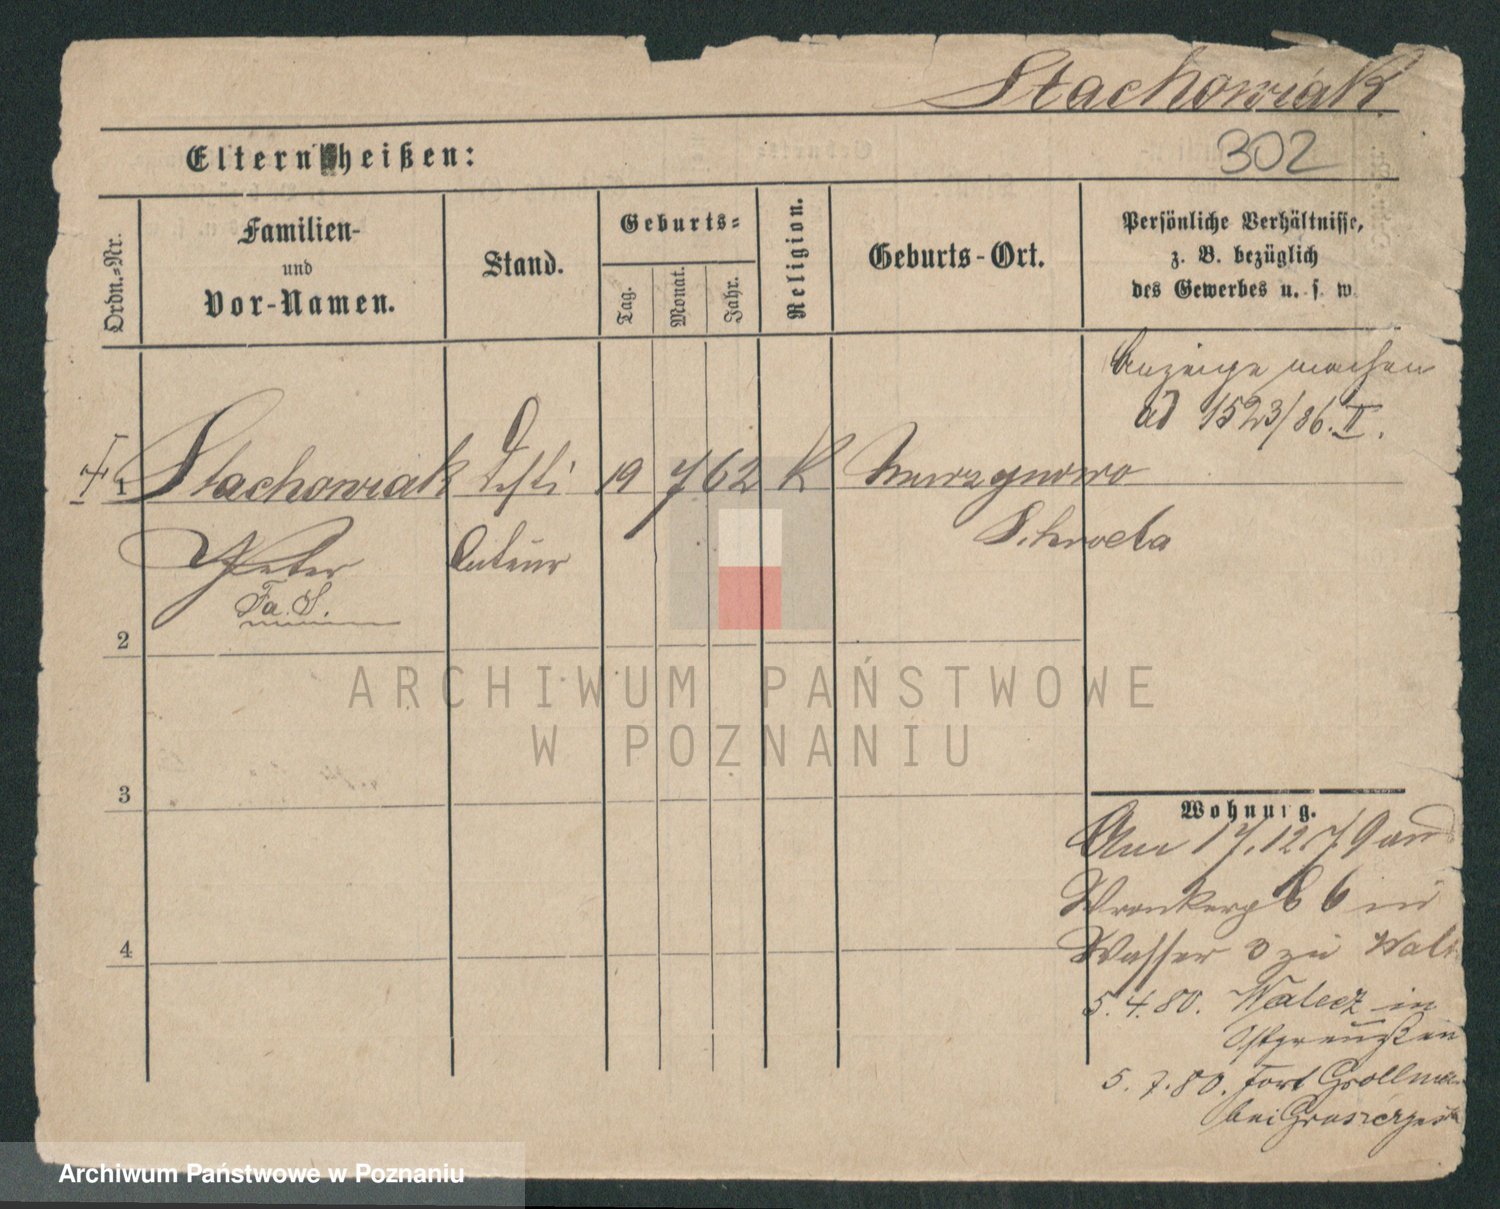 Stachowiak
302
Eltern heißen:
Ordn.=Nr.
Familien-
und
Vor-Namen.
Stand.
Geburts=
Tag.
Monat.
Jahr.
Religion.
Geburts-Ort.
Persönliche Verhältnisse,
z. B. bezüglich
des Gewerbes u. s. w.
Anzeige machen
ad 1523/86. II.
1
Stachowiak
19 7 62 K
Schroda
Peter
Fa. S.
2
3
4
Wohnung.
Am 17.12.79 an
Wronkerg 6
Wasser zu
5.4.80. Walecz in
Ostpreußen
5.7.80. Fort Grollman
bei
ARCHIWUM PAŃSTWOWE
W POZNANIU
Archiwum Państwowe w Poznaniu